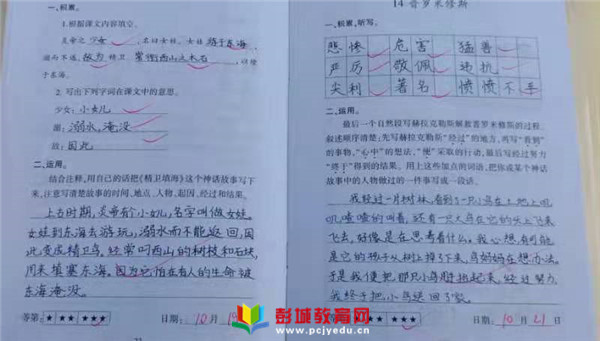 一、积累。
1.根据课文内容填空。
炎帝之少女,名曰女娃。女娃游于东海,
溺而不返,故为精卫,常衔西山之木石,以堙
于东海。
2. 写出下列字词在课文中的意思。
少女:小女儿
溺:溺水,淹没
故:因此
二、运用。
结合注释,用自己的话把《精卫填海》这个神话故事写下
来,注意写清楚故事的时间、地点、人物、起因、经过和结果。
上古时期,炎帝有个小女儿,名字叫做女娃。
女娃到东海去游玩,溺水而不能返回,因
此变成精卫鸟,经常叼西山的树枝和石块,
用来填塞东海。因为它怕在有人的生命被
东海淹没。
等第:★ ★★ ★★★
日期:10月19
14 普罗米修斯
一、积累,听写。
悲惨 危害 猛兽
严厉 敬佩 违抗
尖利 著名 愤愤不平
二、运用。
最后一个自然段写赫拉克勒斯解救普罗米修斯的过程,
叙述顺序清楚:先写赫拉克勒斯“经过”的地方,再写“看到”
的事物,“心中”的想法,“便”采取的行动,最后写经过努力
“终于”得到的结果。用上这些加点的词语,把你或某个神话
故事中的人物做过的一件事写成一段话。
我经过一片树林,看到了一只小鸟在土地上叽
叽喳喳的叫着,还有一只大鸟在它的头上飞来
飞去,好像是在思考着什么。我心想:有可能
是它的孩子从树上掉了下来,鸟妈妈在想办法。
于是我便把那只小鸟抱起来,经过努力
我终于把小鸟送回了家。
等第:★ ★★ ★★★
日期:10月21日
彭城教育网
www.pcjyedu.cn